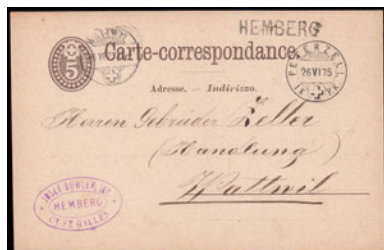 HEMBERG
5
Carte-correspondance.
PETERZELL
26 VI 75
Adresse. — Indirizzo.
Herren Gebrüder Zeller
(Handlung)
Wattwil
HEMBERG
CT. ST. GALLEN